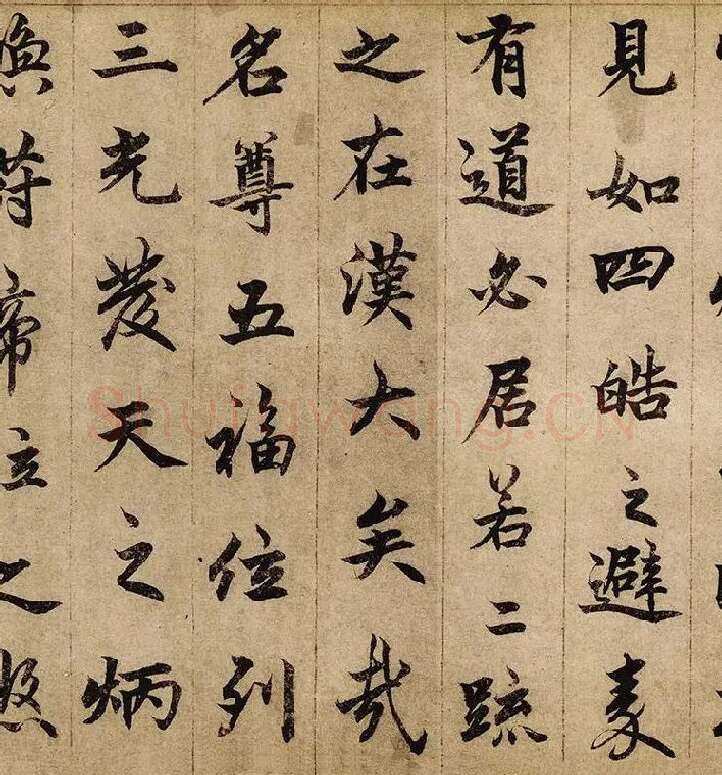 見如四皓之避秦
有道必居若二疏
之在漢大矣哉
名尊五福位列
三光發天之炳
符帝之